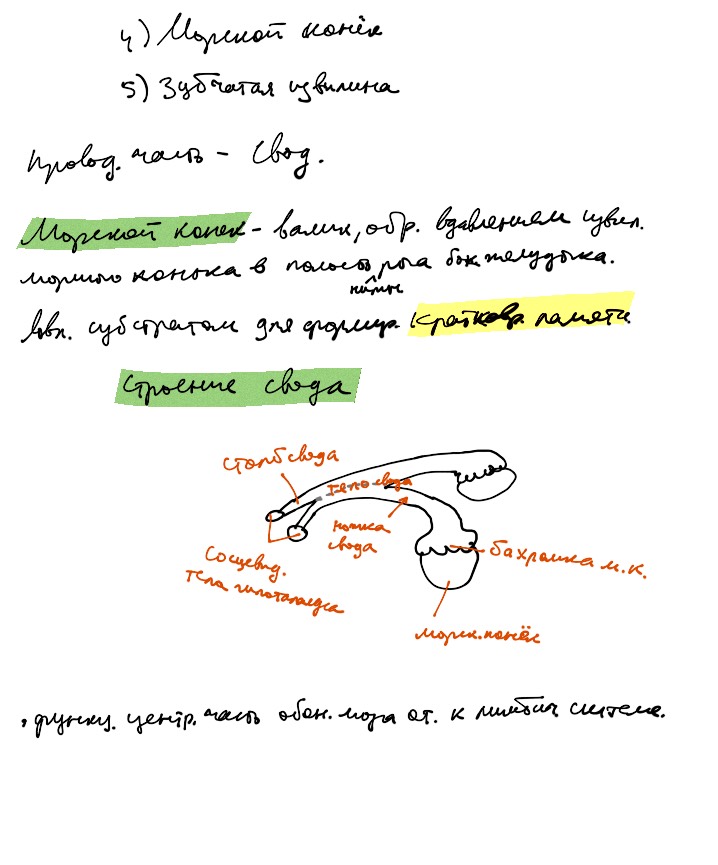 4) Морской конёк
5) Зубчатая извилина
Провод. часть - Свод.
Морской конек - валик, обр. вдавлением извил.
морского конька в полость рога бок. желудочка.
нижн
Явл. субстратом для формир. кратковр. памяти
Строение свода
столб свода
тело свода
ножка
свода
Сосцевид.
тела гипоталамуса
бахромка м.к.
морск. конёк
функц. центр. часть обон. мозга от. к лимбич. системе.